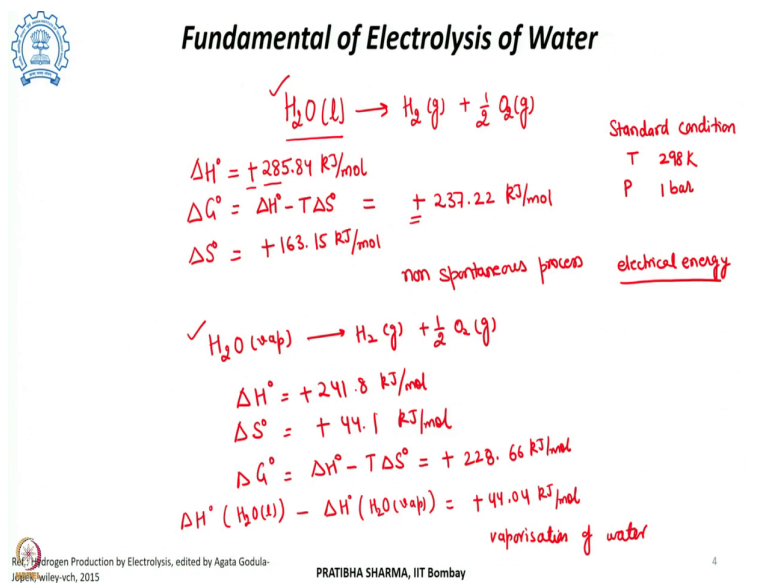 Fundamental of Electrolysis of Water
H₂O(l) → H₂(g) + ½ O₂(g)
Standard condition
T 298K
P 1 bar
ΔH° = +285.84 kJ/mol
ΔG° = ΔH° - TΔS° = + 237.22 kJ/mol
ΔS° = +163.15 kJ/mol
non spontaneous process electrical energy
H₂O(vap) → H₂(g) + ½ O₂(g)
ΔH° = +241.8 kJ/mol
ΔS° = + 44.1 kJ/mol
ΔG° = ΔH° - TΔS° = + 228.66 kJ/mol
ΔH°(H₂O(l)) - ΔH°(H₂O(vap)) = +44.04 kJ/mol
vaporisation of water
Ref.: Hydrogen Production by Electrolysis, edited by Agata Godula-
Jopek, wiley-vch, 2015
PRATIBHA SHARMA, IIT Bombay
4